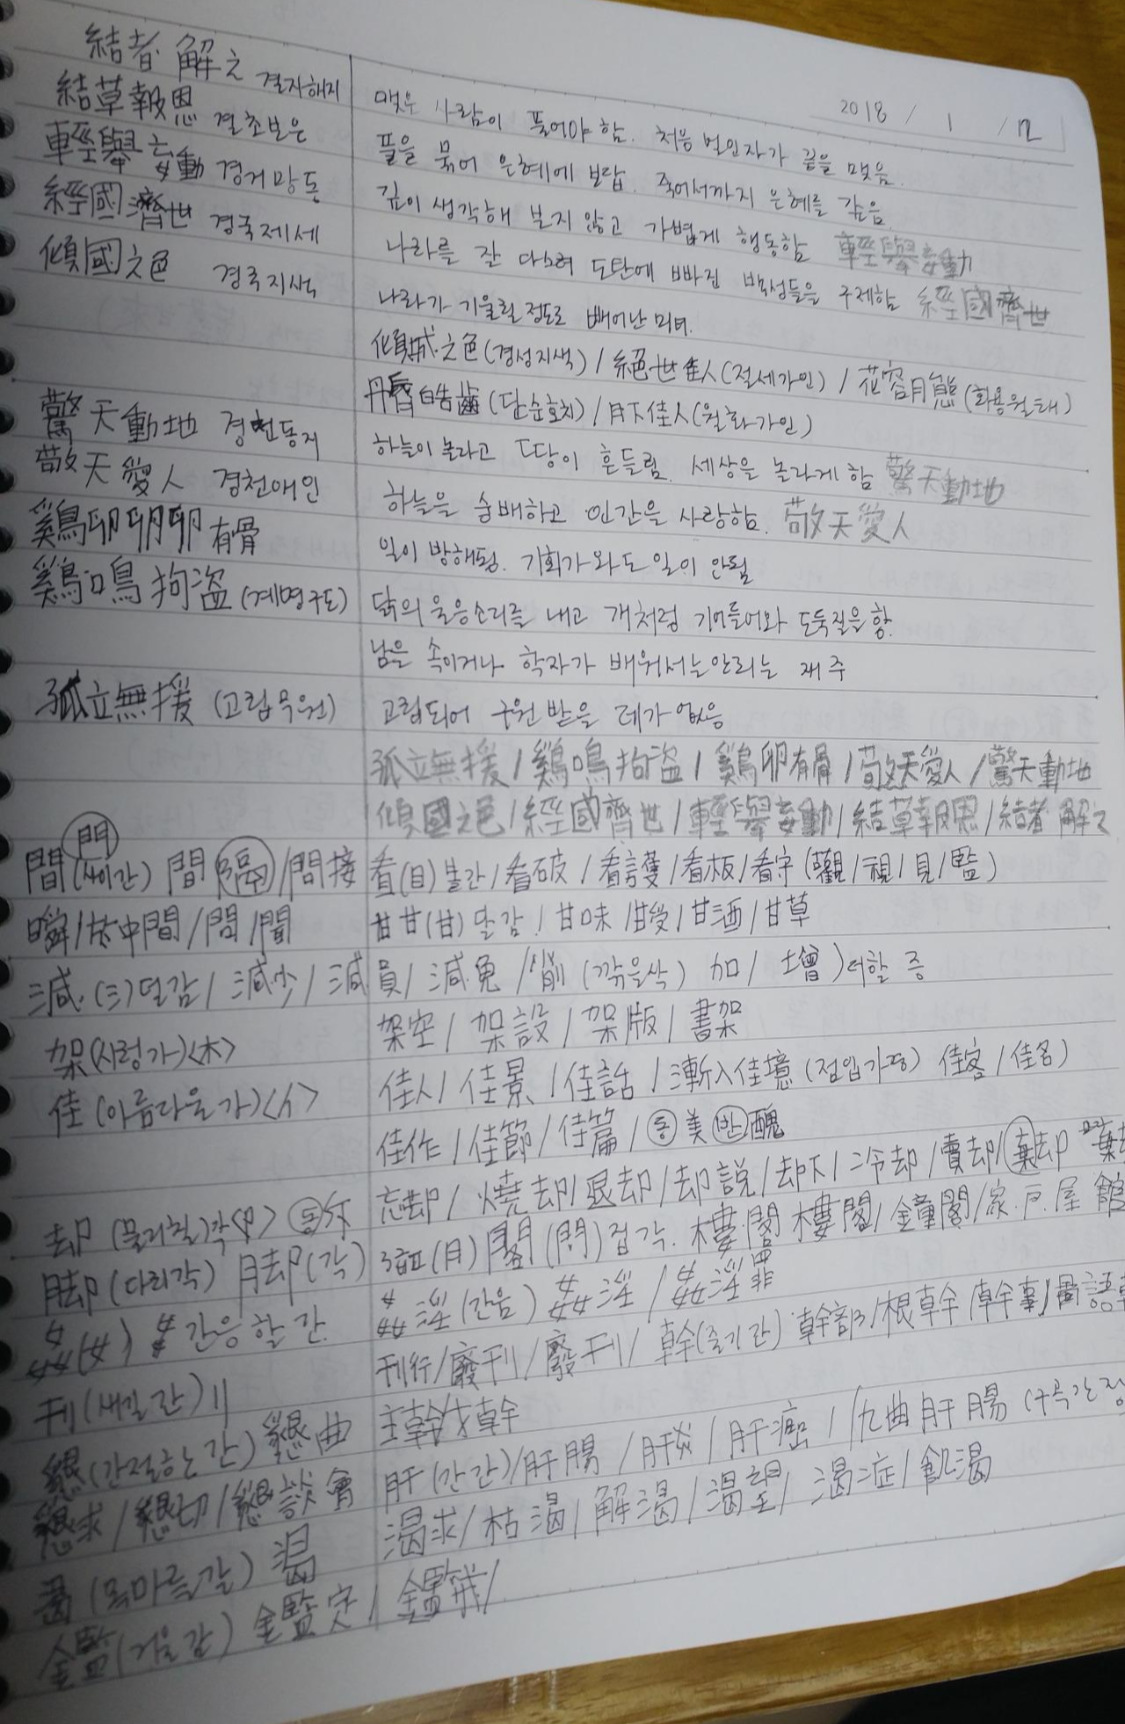 2018 / 1 / 12
結者解之 결자해지 맺은 사람이 풀어야 함. 처음 벌인자가 끝을 맺음.
結草報恩 결초보은 풀을 묶어 은혜에 보답 죽어서까지 은혜를 갚음.
輕擧妄動 경거망동 깊이 생각해 보지 않고 가볍게 행동함 輕擧妄動
經國濟世 경국제세 나라를 잘 다스려 도탄에 빠진 백성들을 구제함 經國濟世
傾國之色 경국지색 나라가 기울릴 정도로 빼어난 미녀.
傾城之色(경성지색) / 絕世佳人(절세가인) / 花容月態(화용월태)
丹脣皓齒(단순호치) / 月下佳人(월하가인)
驚天動地 경천동지 하늘이 놀라고 땅이 흔들림. 세상을 놀라게 함 驚天動地
敬天愛人 경천애인 하늘을 숭배하고 인간을 사랑함. 敬天愛人
鷄卵 有骨 일이 방해됨. 기회가 와도 일이 안됨
鷄鳴拘盜(계명구도) 닭의 울음소리를 내고 개처럼 기어들어와 도둑질을 함.
남을 속이거나 학자가 배워서는 안되는 재주
孤立無援 (고립무원) 고립되어 구원 받을 데가 없음
孤立無援 / 鷄鳴拘盜 / 鷄卵有骨 / 敬天愛人 / 驚天動地
傾國之色 / 經國濟世 / 輕擧妄動 / 結草報恩 / 結者解之
門
間(사이간) 間隔/間接 看(目)볼간/看破/看護/看板/看守(觀/視/見/監)
瞬/ 中間/問/聞 甘甘(甘)달감/甘味/甘受/甘酒/甘草
減(氵)덜감/減少/減員/減免/削(깎을삭) 加/增)더할 증
架(시렁가)<木> 架空/架設/架版/書架
佳(아름다울가)<亻> 佳人/佳景/佳話/漸入佳境(점입가경) 佳客/佳名)
佳作/佳節/佳篇/동美 반醜
却(물리칠)각<卩> 동 忘却/燒却/退却/却說/却下/冷却/賣却/棄却
脚(다리각) 脚(각) (月) 閣(門)접각. 樓閣 樓閣/鐘閣/家.戶.屋 館
姦(女) 간음할 간 姦淫(간음) 姦淫/姦淫罪
刊(새길간)刂 刊行/廢刊/廢刊/幹(줄기간) 幹部/根幹/幹事/
懇(간절하는간) 懇曲 主幹/才幹
懇求/懇切/懇談會 肝(간간)/肝腸/肝炎/肝癌/九曲肝腸(구곡간장
渴(목마를갈) 渴 渴求/枯渴/解渴/渴望/渴症/飢渴
鑑(거울감) 鑑定/鑑識/